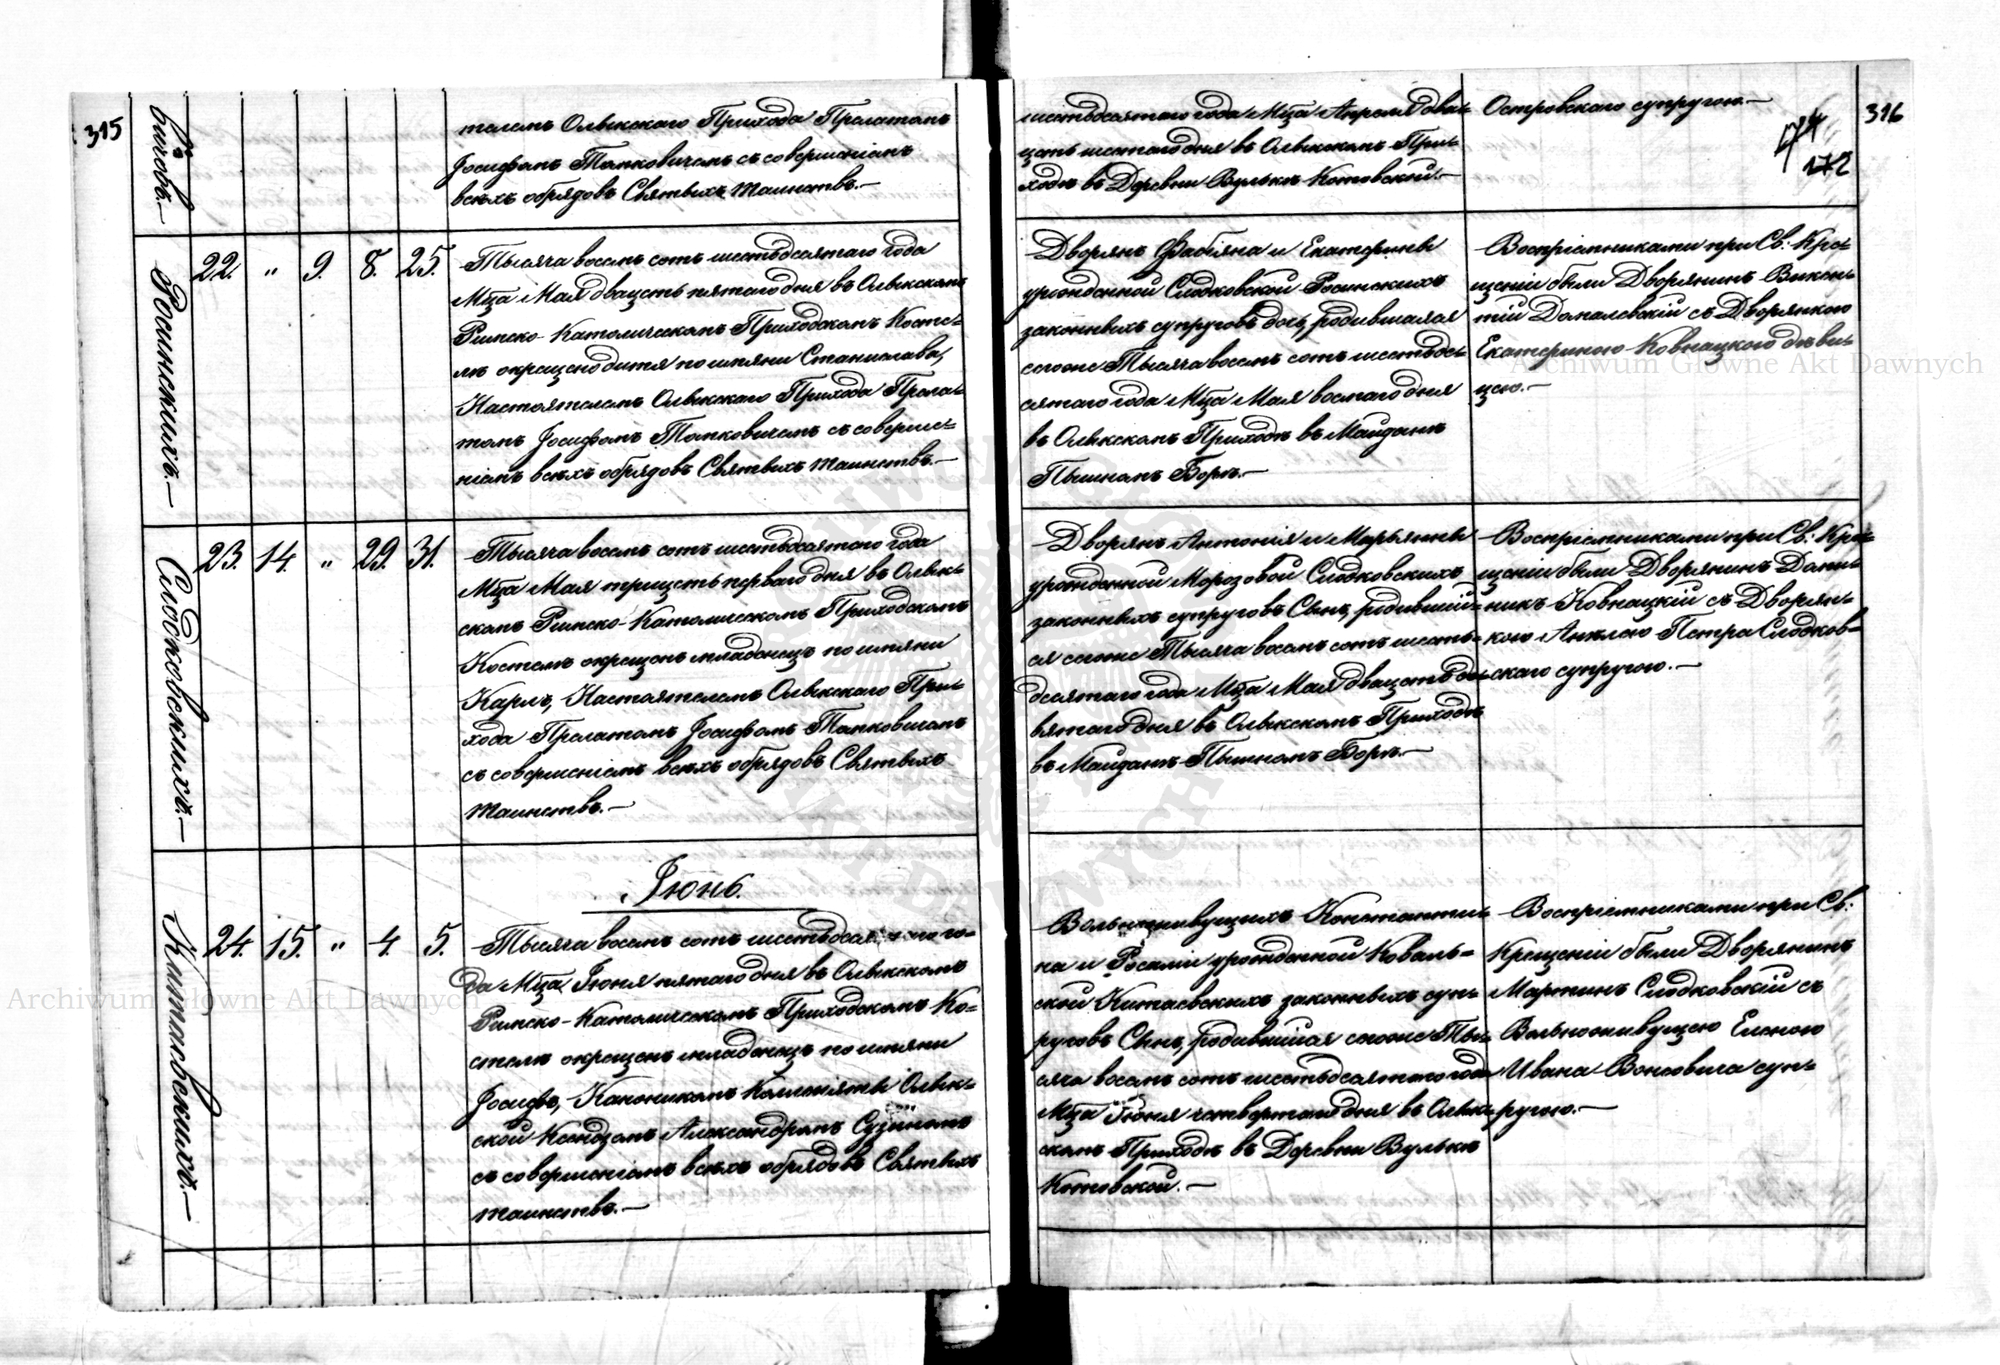 315
вичовъ.—
телемъ Олыкскаго Прихода Прелатомъ
Іосифомъ Томковичемъ съ совершеніемъ
всѣхъ обрядовъ Святыхъ таинствъ.—
шестьдесятаго года Мца Апреля двад-
цать шестаго дня въ Олыкскомъ При-
ходѣ въ Деревни Вулькѣ Котовской.—
Островскаго супругою.—
172
316
Росинскихъ.—
22. " 9. 8. 25.
Тысяча восемъ сотъ шестьдесятаго года
Мца Мая двацеть пятаго дня въ Олыкскомъ
Римско-Католическомъ Приходскомъ Косте-
лѣ окрещено дитя по имяни Станислава,
Настоятелемъ Олыкскаго Прихода Прела-
томъ Іосифомъ Томковичемъ съ соверше-
ніемъ всѣхъ обрядовъ Святыхъ таинствъ.—
Дворянъ Фабіяна и Екатерины
урожденной Слодковской Росинскихъ
законныхъ супруговъ дочь, родившаяся
сегоже Тысяча восемъ сотъ шестьде-
сятаго года Мца Мая восмаго дня
въ Олыкскомъ Приходѣ въ Майданѣ
Пышномъ Борѣ.—
Воспріемниками при Св: Кре-
щеніи были Дворянинъ Викен-
тій Домалевскій съ Дворянкою
Екатериною Ковнацкого дѣви-
цею.—
Archiwum Główne Akt Dawnych
Слодковскихъ.—
23. 14. " 29. 31.
Тысяча восемъ сотъ шестьдесятаго года
Мца Мая трицеть перваго дня въ Олык-
скомъ Римско-Католическомъ Приходскомъ
Костелѣ окрещенъ младенецъ по имяни
Карлъ, Настоятелемъ Олыкскаго При-
хода Прелатомъ Іосифомъ Томковичемъ
съ совершеніемъ всѣхъ обрядовъ Святыхъ
таинствъ.—
Дворянъ Антонія и Марьянны
урожденной Морозовой Слодковскихъ
законныхъ супруговъ Сынъ, родившій-
ся сегоже Тысяча восемъ сотъ шесть-
десятаго года Мца Мая двацеть де-
вятаго дня въ Олыкскомъ Приходѣ
въ Майданѣ Пышномъ Борѣ.—
Воспріемниками при Св: Кре-
щеніи были Дворянинъ Доми-
никъ Ковнацкій съ Дворян-
кою Анклею Петра Слодков-
скаго супругою.—
Китаевскихъ.—
Іюнь.
24. 15. " 4. 5.
Тысяча восемъ сотъ шестьдесятаго го-
да Мца Іюня пятаго дня въ Олыкскомъ
Римско-Католическомъ Приходскомъ Ко-
стелѣ окрещенъ младенецъ по имяни
Іосифъ, Каноникомъ Коллегіяты Олык-
ской Ксендзомъ Александромъ Сузиномъ
съ совершеніемъ всѣхъ обрядовъ Святыхъ
таинствъ.—
Вольноживущихъ Константи-
на и Розаліи урожденной Коваль-
ской Китаевскихъ законныхъ суп-
руговъ Сынъ, родившійся сегоже Ты-
сяча восемъ сотъ шестьдесятаго года
Мца Іюня четвертаго дня въ Олык-
скомъ Приходѣ въ Деревни Вулькѣ
Котовской.—
Воспріемниками при Св:
Крещеніи были Дворянинъ
Мартинъ Слодковскій съ
Вольноживущею Еленою
Ивана Вонсовича суп-
ругою.—
Archiwum Główne Akt Dawnych